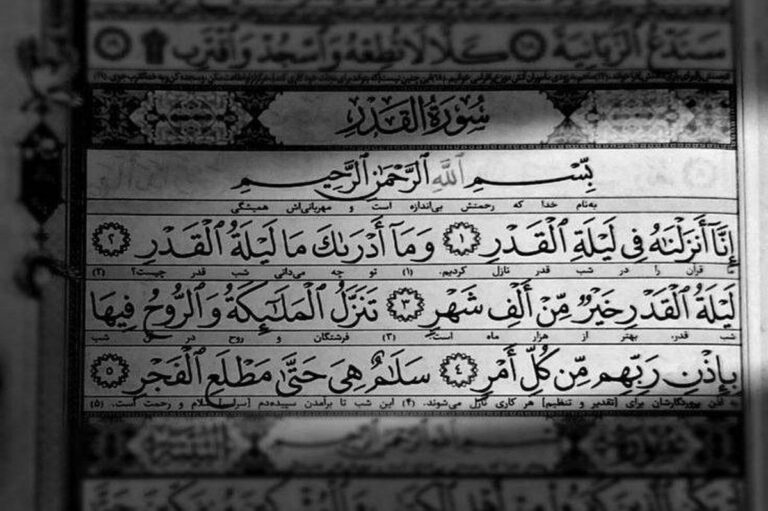 سَنَدْعُ الزَّبَانِيَةَ ﴿١٨﴾ كَلَّا لَا تُطِعْهُ وَاسْجُدْ وَاقْتَرِب ﴿١٩﴾
سُورَةُ الْقَدْرِ
بِسْمِ اللَّهِ الرَّحْمَٰنِ الرَّحِيمِ
به‌نام خدا که رحمتش بی‌اندازه است و مهربانی‌اش همیشگی
إِنَّا أَنْزَلْنَاهُ فِي لَيْلَةِ الْقَدْرِ ﴿١﴾ وَمَا أَدْرَاكَ مَا لَيْلَةُ الْقَدْرِ ﴿٢﴾
ما قرآن را در شب قدر نازل کردیم. (۱) تو چه می‌دانی شب قدر چیست؟ (۲)
لَيْلَةُ الْقَدْرِ خَيْرٌ مِّنْ أَلْفِ شَهْرٍ ﴿٣﴾ تَنَزَّلُ الْمَلَائِكَةُ وَالرُّوحُ فِيهَا
شب قدر، بهتر از هزار ماه است. (۳) فرشتگان و روح در آن شب
بِإِذْنِ رَبِّهِم مِّن كُلِّ أَمْرٍ ﴿٤﴾ سَلَامٌ هِيَ حَتَّىٰ مَطْلَعِ الْفَجْرِ ﴿٥﴾
به اذن پروردگارشان برای [تقدیر و تنظیم] هر کاری نازل می‌شوند. (۴) این شب تا برآمدن سپیده‌دم [سراسر] سلام و رحمت است. (۵)